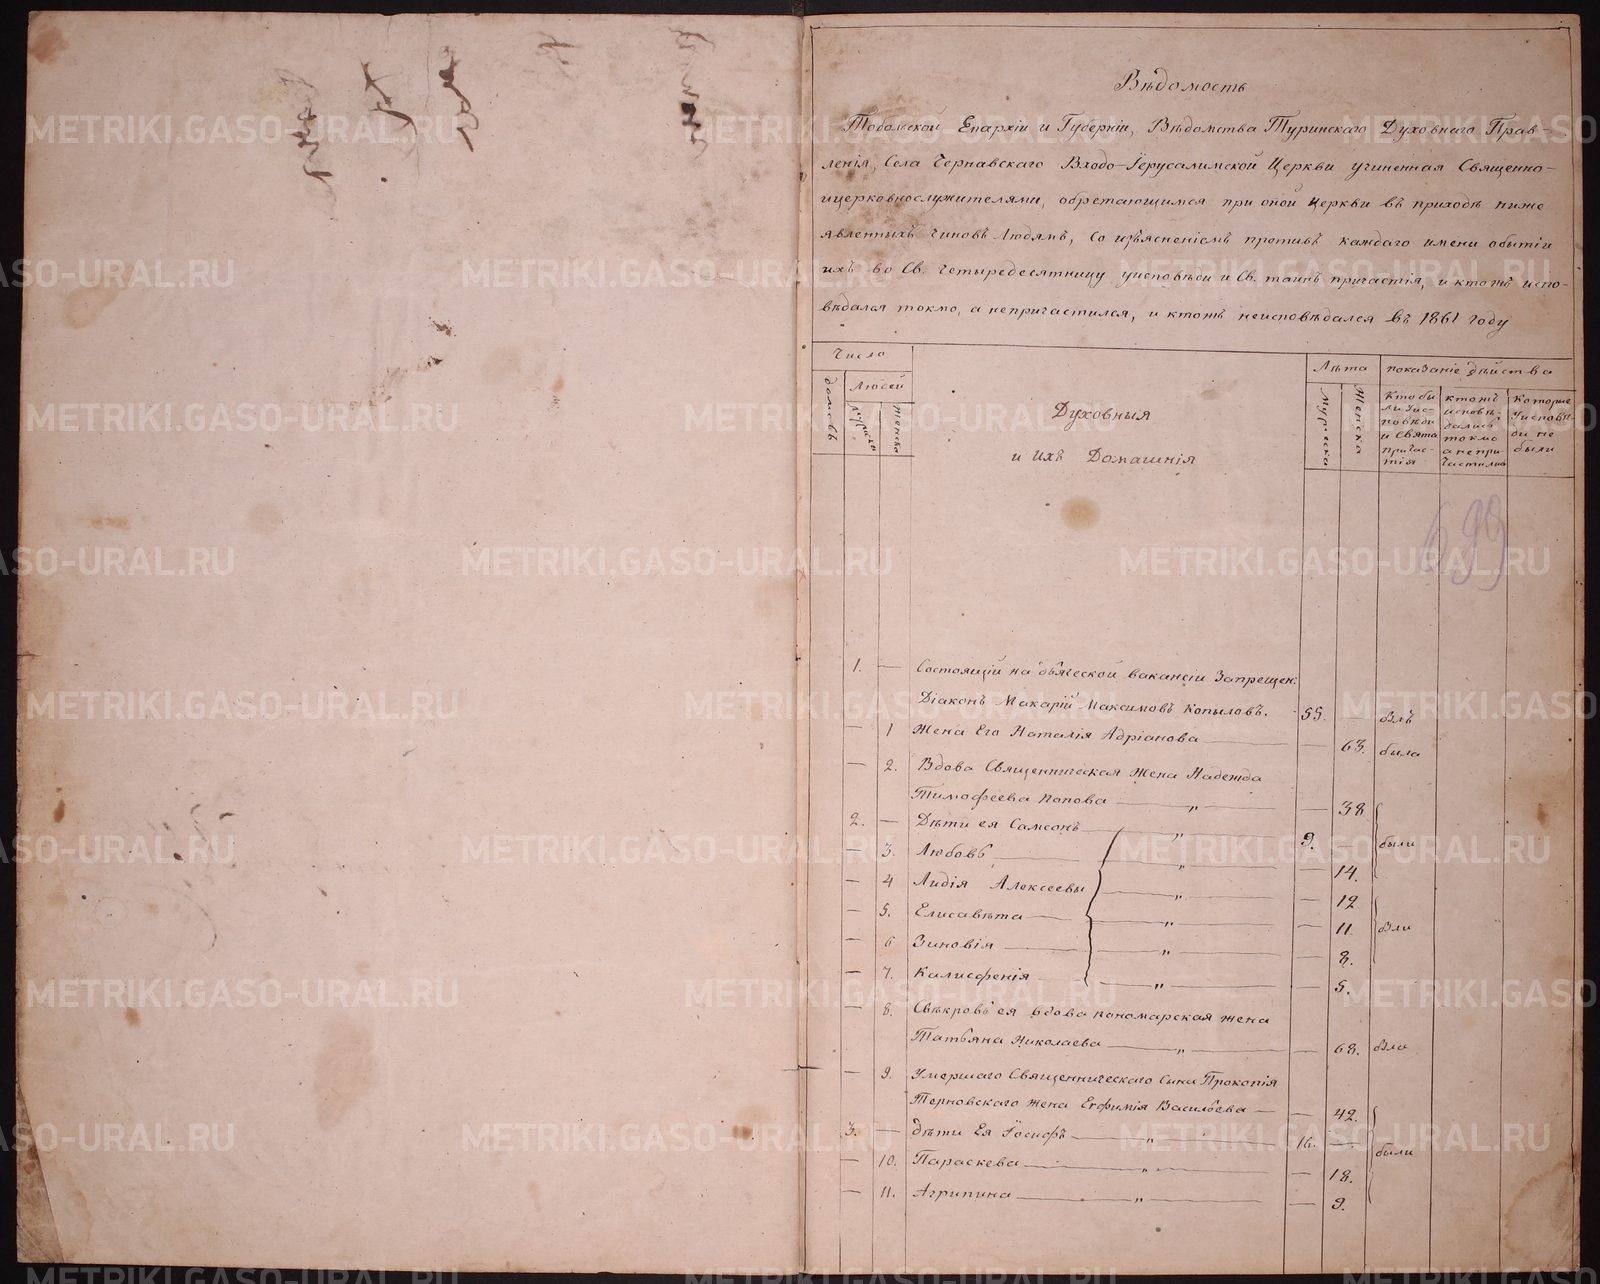 Вѣдомость
Тобольской Епархіи и Губерніи, Вѣдомства Туринскаго Духовнаго Прав-
ленія, Села Чернавскаго Входо-Іерусалимской Церкви учиненная Священно-
ицерковнослужителями, обретающимся при оной церкви въ приходѣ ниже
явленныхъ чиновъ людямъ, Со изъясненіемъ противъ каждаго имени обытіи
ихъ во Св. Четыредесятницу уисповѣди и Св. таинъ причастія, и ктожъ испо-
вѣдался токмо, а непричастился, и ктожъ неисповѣдался въ 1861 году
Число
Лѣта
показаніе дѣйства
домовъ
Людей
мужеска
женска
Духовныя
и ихъ Домашнія
мужеска
женска
Кто бы
ли уис-
повѣди
и Свята
причас-
тія
ктожъ
исповѣ
дались
токмо
а непри
частились
которые
уисповѣ-
ди не
были
699
1. — Состоящій на дьяческой вакансіи Запрещен.
Діаконъ Макарій Максимовъ Копыловъ. 55. — былъ
— 1 Жена Его Наталія Адріанова — 63. была
— 2. Вдова Священническая жена Надежда
Тимофеева Попова „ — 38
2. — Дѣти ея Самсонъ „ 9. — были
— 3. Любовь „ — 14.
— 4 Лидія Алексеевы „ — 12
— 5. Елисавѣта „ — 11. были
— 6 Зиновія „ — 8.
— 7. Калисфенія „ — 5.
— 8. Свѣкровь ея вдова пономарская жена
Татьяна Николаева „ — 68. была
— 9. Умершаго Священническаго сына Прокопія
Терновскаго жена Егфимія Васильева — — 42.
3. — дѣти Ея Іосифъ „ 16. — были
— 10. Параскева „ — 18.
— 11. Агрипина „ — 9.
METRIKI.GASO-URAL.RU